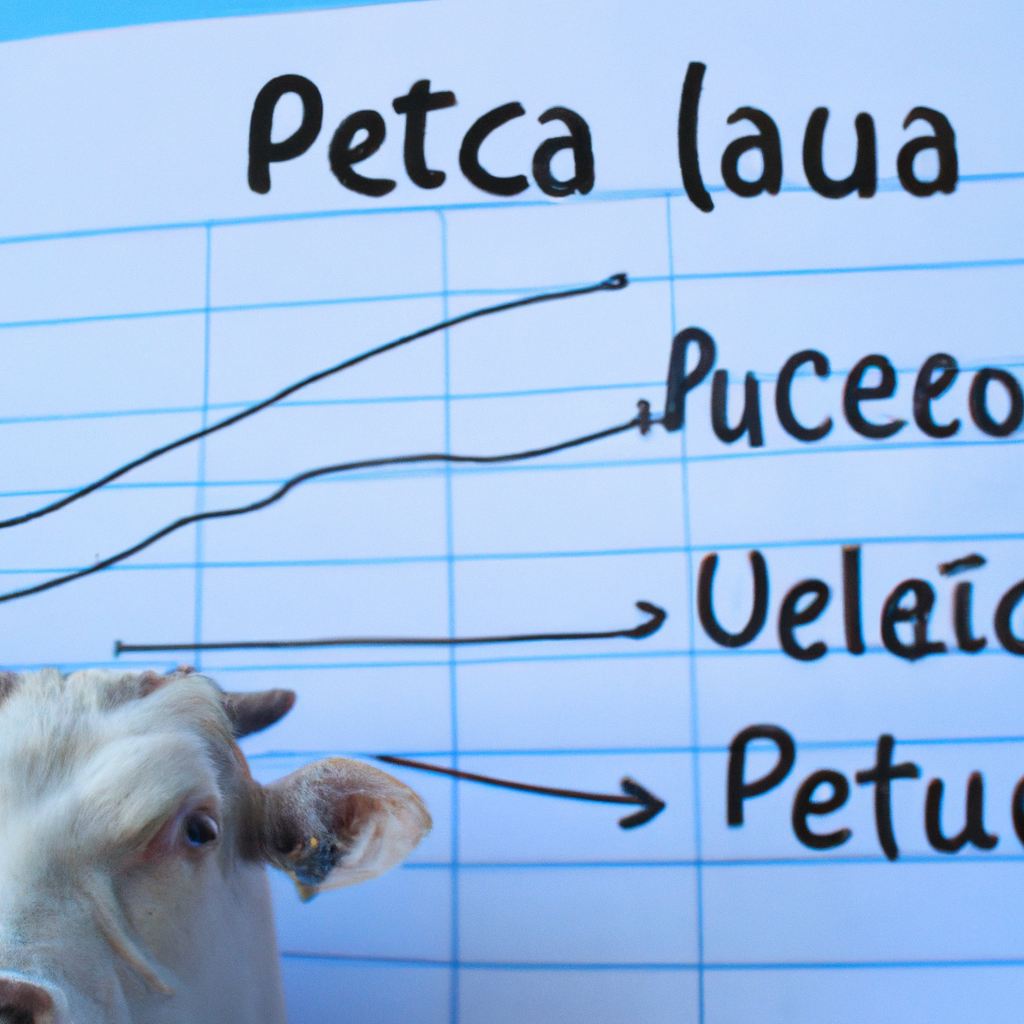 Petca laua
Puceeo
Uelaīc
Petue